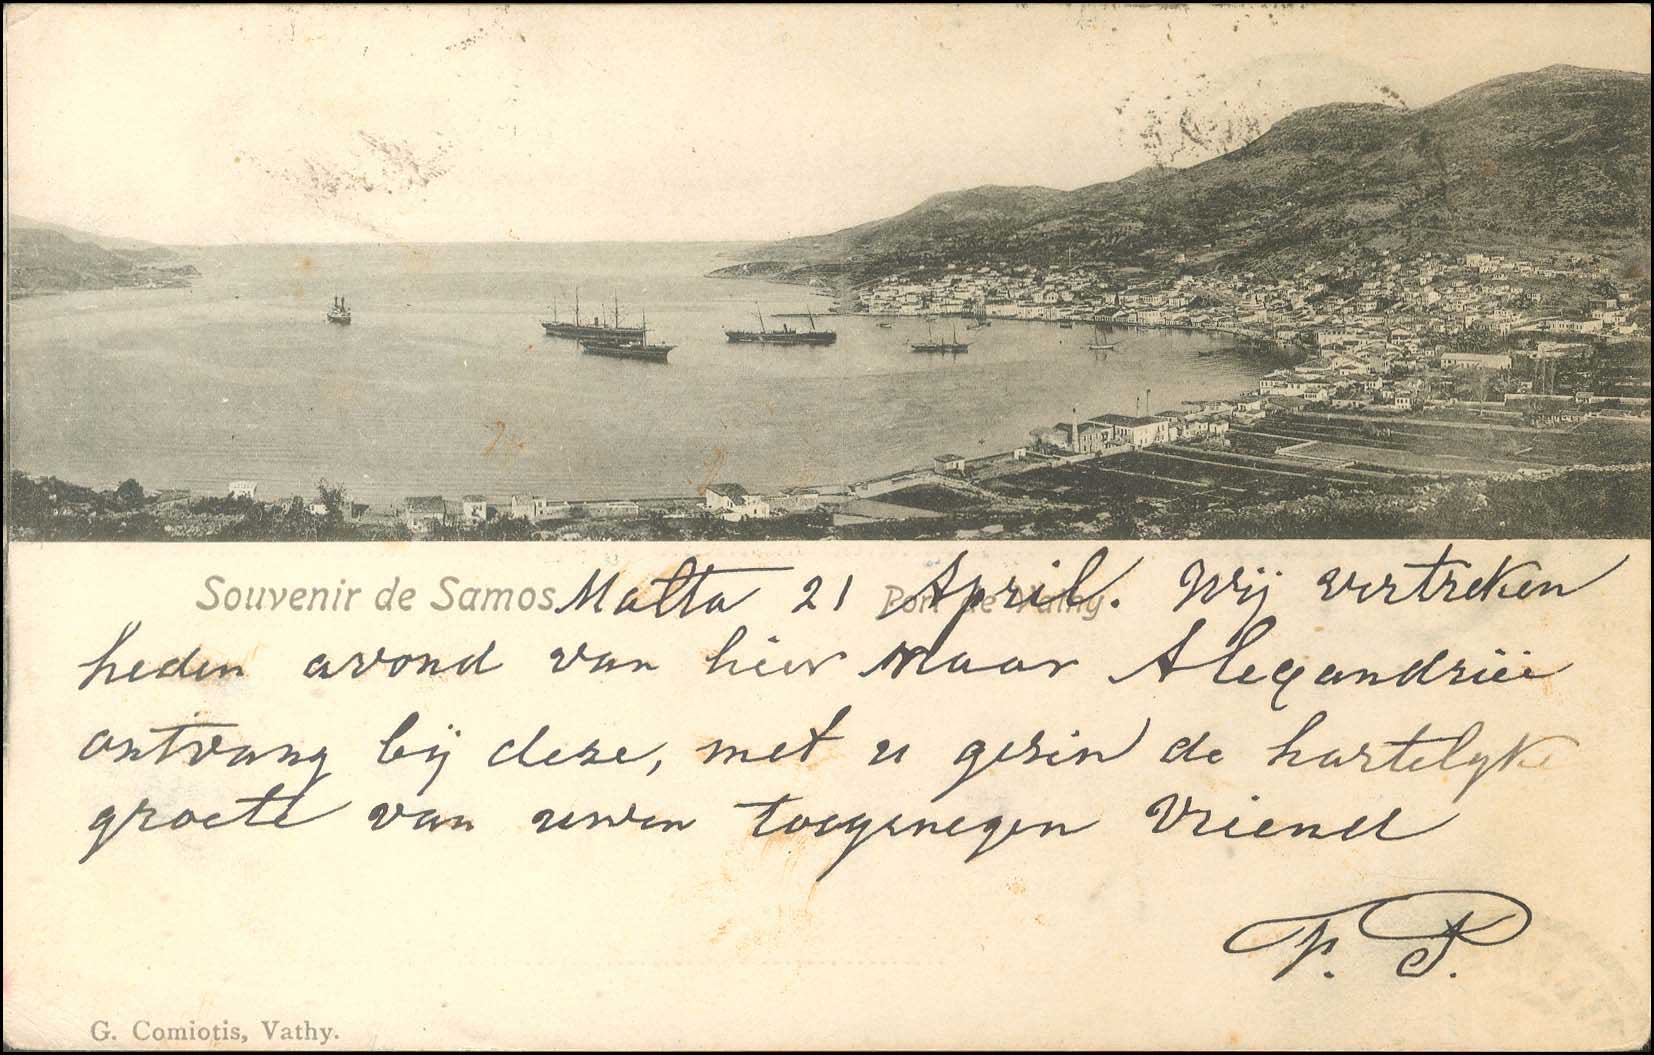 Souvenir de Samos Malta 21 April. Wij vertreken
Port de Vathy
heden avond van hier naar Alexandriëe
ontvang bij deze, met u gezin de hartelyke
groete van uwen toegenegen Vriend
F. P.
G. Comiotis, Vathy.